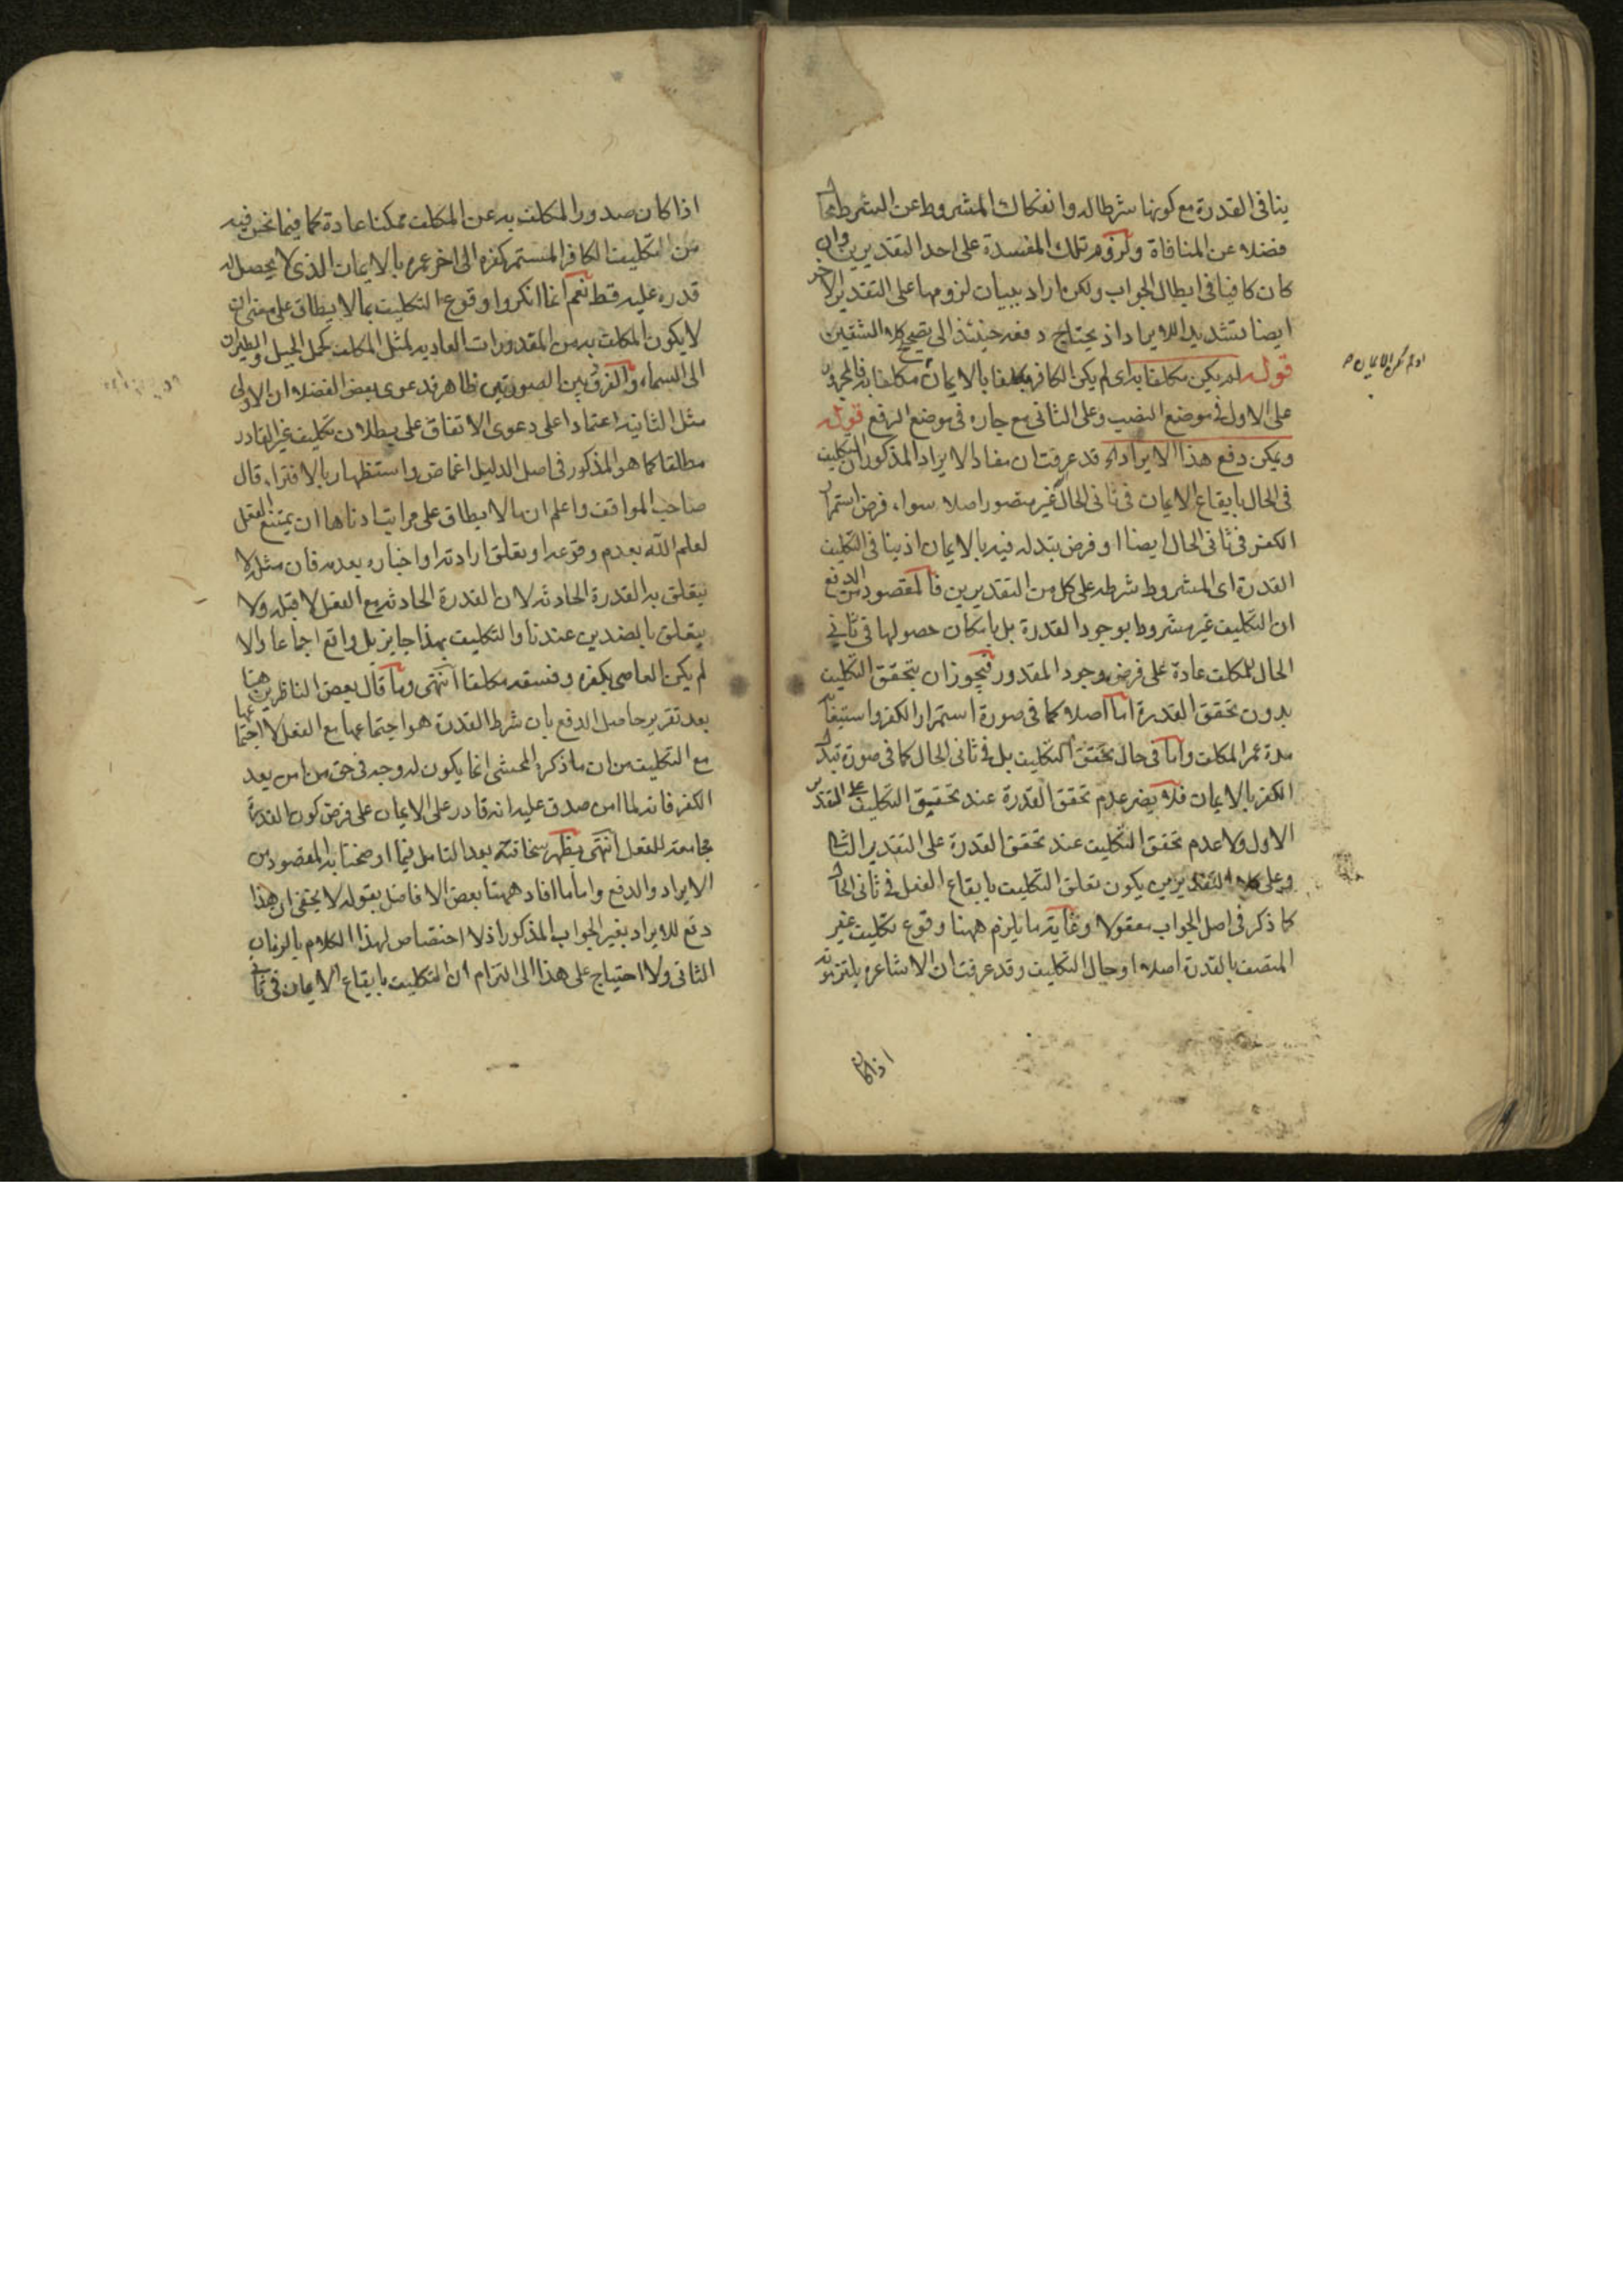 ينافى القدرة مع كونها شرطا له وانفكاك المشروط عن الشرط محال
فضلا عن المنافاة ولزوم تلك المفسدة على احد التقديرين وان
كان كافيا فى ابطال الجواب ولكن اراد ببيان لزومها على التقدير الاخر
ايضا تشديد الايراد اذ يحتاج دفعه حينئذ الى تصحيح كلا الشقين
قوله لم يكن مكلفا به اى لم يكن الكافر مكلفا بالايمان مكلفا به فالمجرور
على الاول فى موضع النصب وعلى الثانى مع جاره فى موضع الرفع قوله
ويمكن دفع هذا الايراد اه قد عرفت ان مفاد الايراد المذكور ان التكليف
فى الحال بايقاع الايمان فى ثانى الحال غير متصور اصلا سواء فرض استمرار
الكفر فى ثانى الحال ايضا او فرض تبدله فيه بالايمان اذ ينافى التكليف
القدرة اى المشروط شرطه على كل من التقديرين فالمقصود من الدفع
ان التكليف غير مشروط بوجود القدرة بل بامكان حصولها فى ثانى
الحال للمكلف عادة على فرض وجود المقدور فيجوز ان يتحقق التكليف
بدون تحقق القدرة اما اصلا كما فى صورة استمرار الكفر واستيفائه
مدة عمر المكلف واما فى حال تحقق التكليف بل فى ثانى الحال كما فى صورة تبدل
الكفر بالايمان فلا يضر عدم تحقق القدرة عند تحقيق التكليف على التقدير
الاول ولا عدم تحقق التكليف عند تحقق القدرة على التقدير الثانى
وعلى كلا التقديرين يكون تعلق التكليف بايقاع الفعل فى ثانى الحال
كما ذكر فى اصل الجواب معقولا وغاية ما يلزم ههنا وقوع تكليف غير
المتصف بالقدرة اصلا او حال التكليف وقد عرفت ان الاشاعره يلتزمونه
اذا كان
اذا كان صدور المكلف به عن المكلف ممكنا عادة كما فيما نحن فيه
من تكليف الكافر المستمر كفره الى اخر عمره بالايمان الذى لا يحصل له
قدره عليه قط نعم انما انكروا وقوع التكليف بما لا يطاق على معنى ان
لا يكون المكلف به من المقدورات العاديه لمثل المكلف كحمل الجبل والطيران
الى السماء والفرق بين الصورتين ظاهر فدعوى بعض الفضلاء ان الاولى
مثل الثانيه اعتمادا على دعوى الاتفاق على بطلان تكليف غير القادر
مطلقا كما هو المذكور فى اصل الدليل اغماض واستظهار بالافتراء قال
صاحب المواقف واعلم ان ما لا يطاق على مراتب ادناها ان يمتنع الفعل
لعلم الله بعدم وقوعه او تعلق ارادته او اخباره بعدمه فان مثله لا
يتعلق به القدرة الحادثه لان القدرة الحادثه مع الفعل لا قبله ولا
يتعلق بالضدين عندنا والتكليف بهذا جايز بل واقع اجماعا والا
لم يكن العاصى بكفره وفسقه مكلفا انتهى وما قال بعض الناظرين ههنا
بعد تقرير حاصل الدفع بان شرط القدرة هو اجتماعها مع الفعل لا اجتماعها
مع التكليف من ان ما ذكره المحشى انما يكون له وجه فى حق من امن بعد
الكفر فانه لما امن صدق عليه انه قادر على الايمان على فرض كون القدرة
مجامعه للفعل انتهى يظهر سخافته بعد التامل فيما اوضحنا به المقصود من
الايراد والدفع واما ما افاد ههنا بعض الافاضل بقوله لا يخفى ان هذا
دفع للايراد بغير الجواب المذكور اذ لا اختصاص لهذا الكلام بالزمان
الثانى ولا احتياج على هذا الى التزام ان التكليف بايقاع الايمان فى ثانى